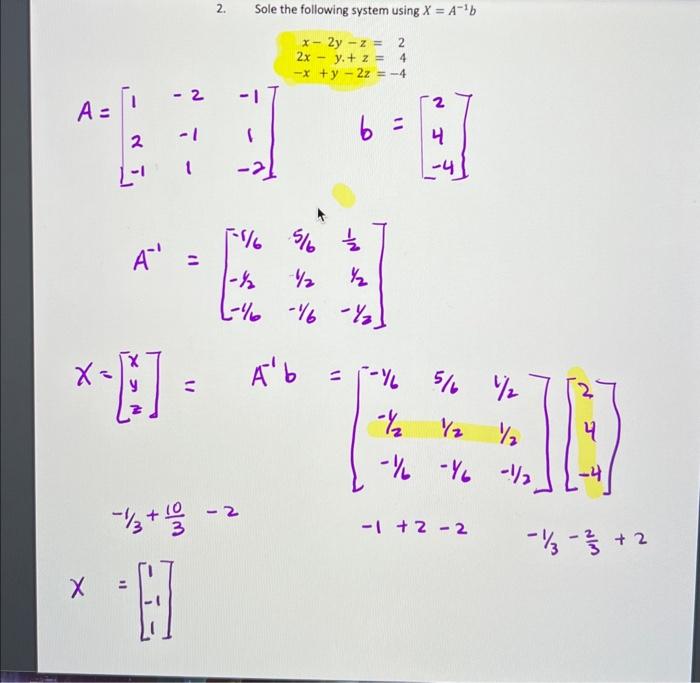 2. Sole the following system using X = A⁻¹b
x − 2y − z = 2
2x − y.+ z = 4
−x + y − 2z = −4
A = [1 -2 -1
2 -1 1
-1 1 -2]
b = [2
4
-4]
A⁻¹ = [-1/6 5/6 1/2
-1/2 1/2 1/2
-1/6 -1/6 -1/2]
X = [x
y
z] = A⁻¹b = [-1/6 5/6 1/2
-1/2 1/2 1/2
-1/6 -1/6 -1/2] [2
4
-4]
-1/3 + 10/3 - 2
-1 + 2 - 2
-1/3 - 2/3 + 2
X = [1
-1
1]